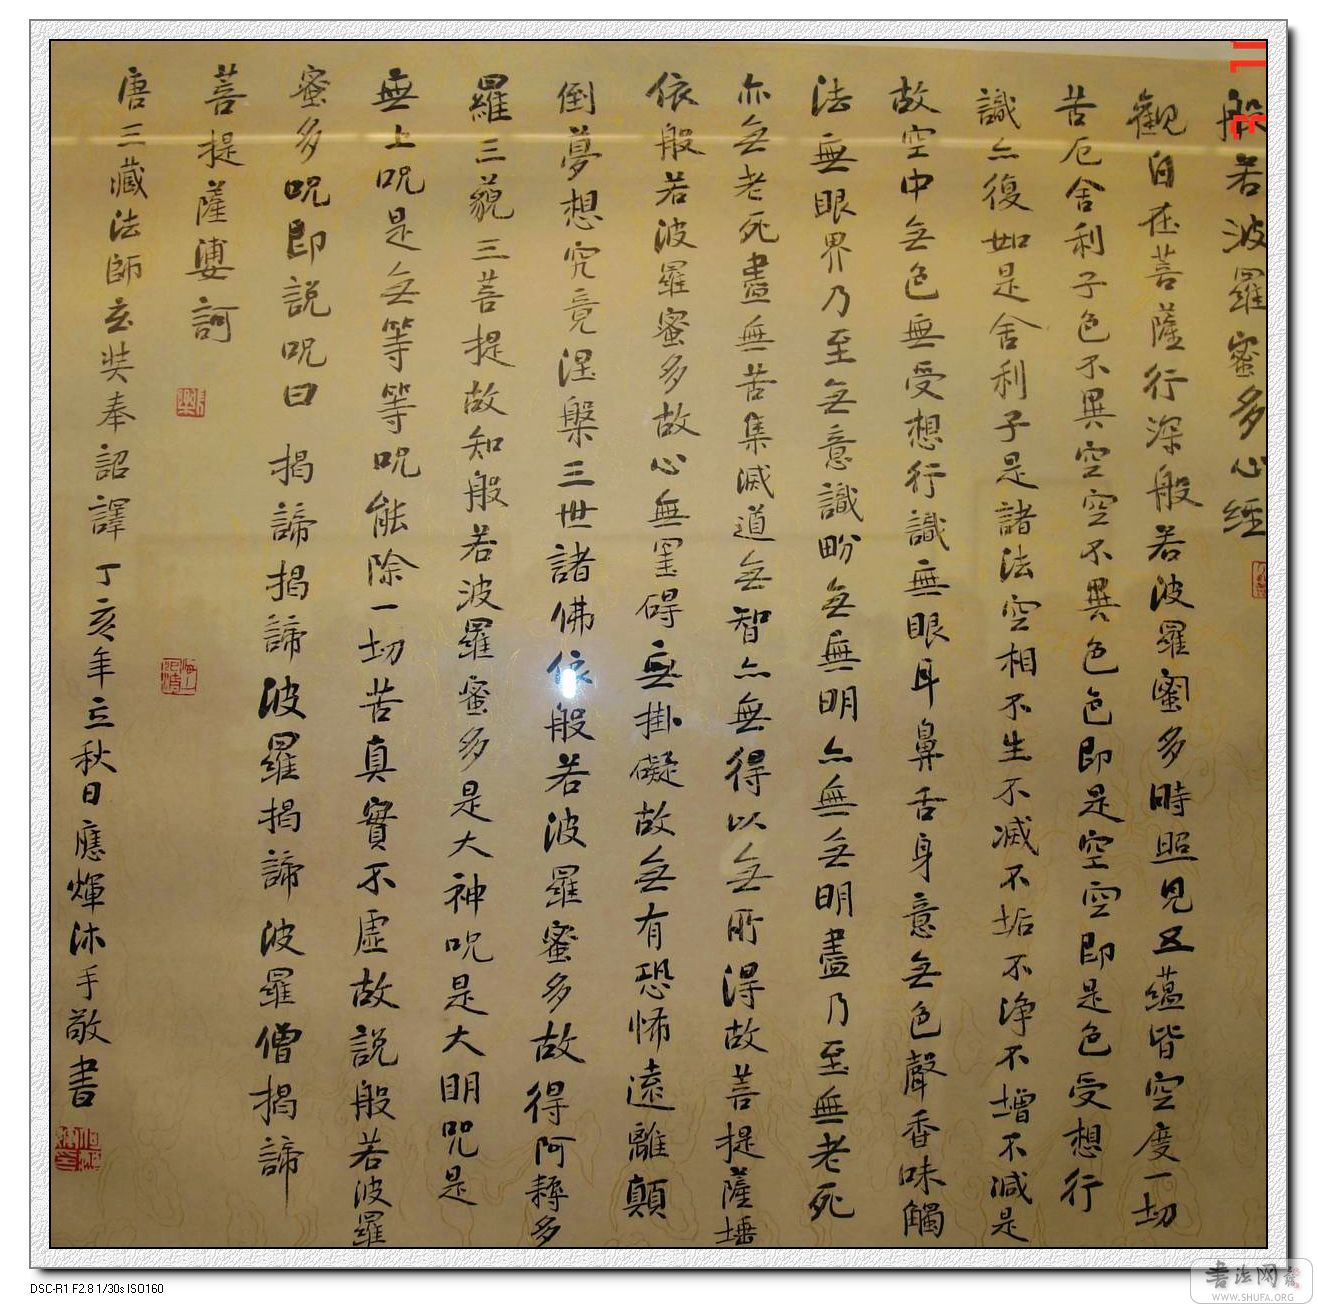 般若波羅蜜多心經
觀自在菩薩行深般若波羅蜜多時照見五蘊皆空度一切
苦厄舍利子色不異空空不異色色即是空空即是色受想行
識亦復如是舍利子是諸法空相不生不滅不垢不浄不增不減是
故空中無色無受想行識無眼耳鼻舌身意無色聲香味觸
法無眼界乃至無意識界無無明亦無無明盡乃至無老死
亦無老死盡無苦集滅道無智亦無得以無所得故菩提薩埵
依般若波羅蜜多故心無罣碍無掛礙故無有恐怖遠離顛
倒夢想究竟涅槃三世諸佛依般若波羅蜜多故得阿耨多
羅三藐三菩提故知般若波羅蜜多是大神呪是大明呪是
無上呪是無等等呪能除一切苦真實不虛故説般若波羅
蜜多呪即説呪曰 揭諦揭諦波羅揭諦波羅僧揭諦
菩提薩婆訶
唐三藏法師玄奘奉詔譯丁亥年立秋日應煇沐手敬書
DSC-R1 F2.8 1/30s ISO160
書法网
WWW.SHUFA.ORG